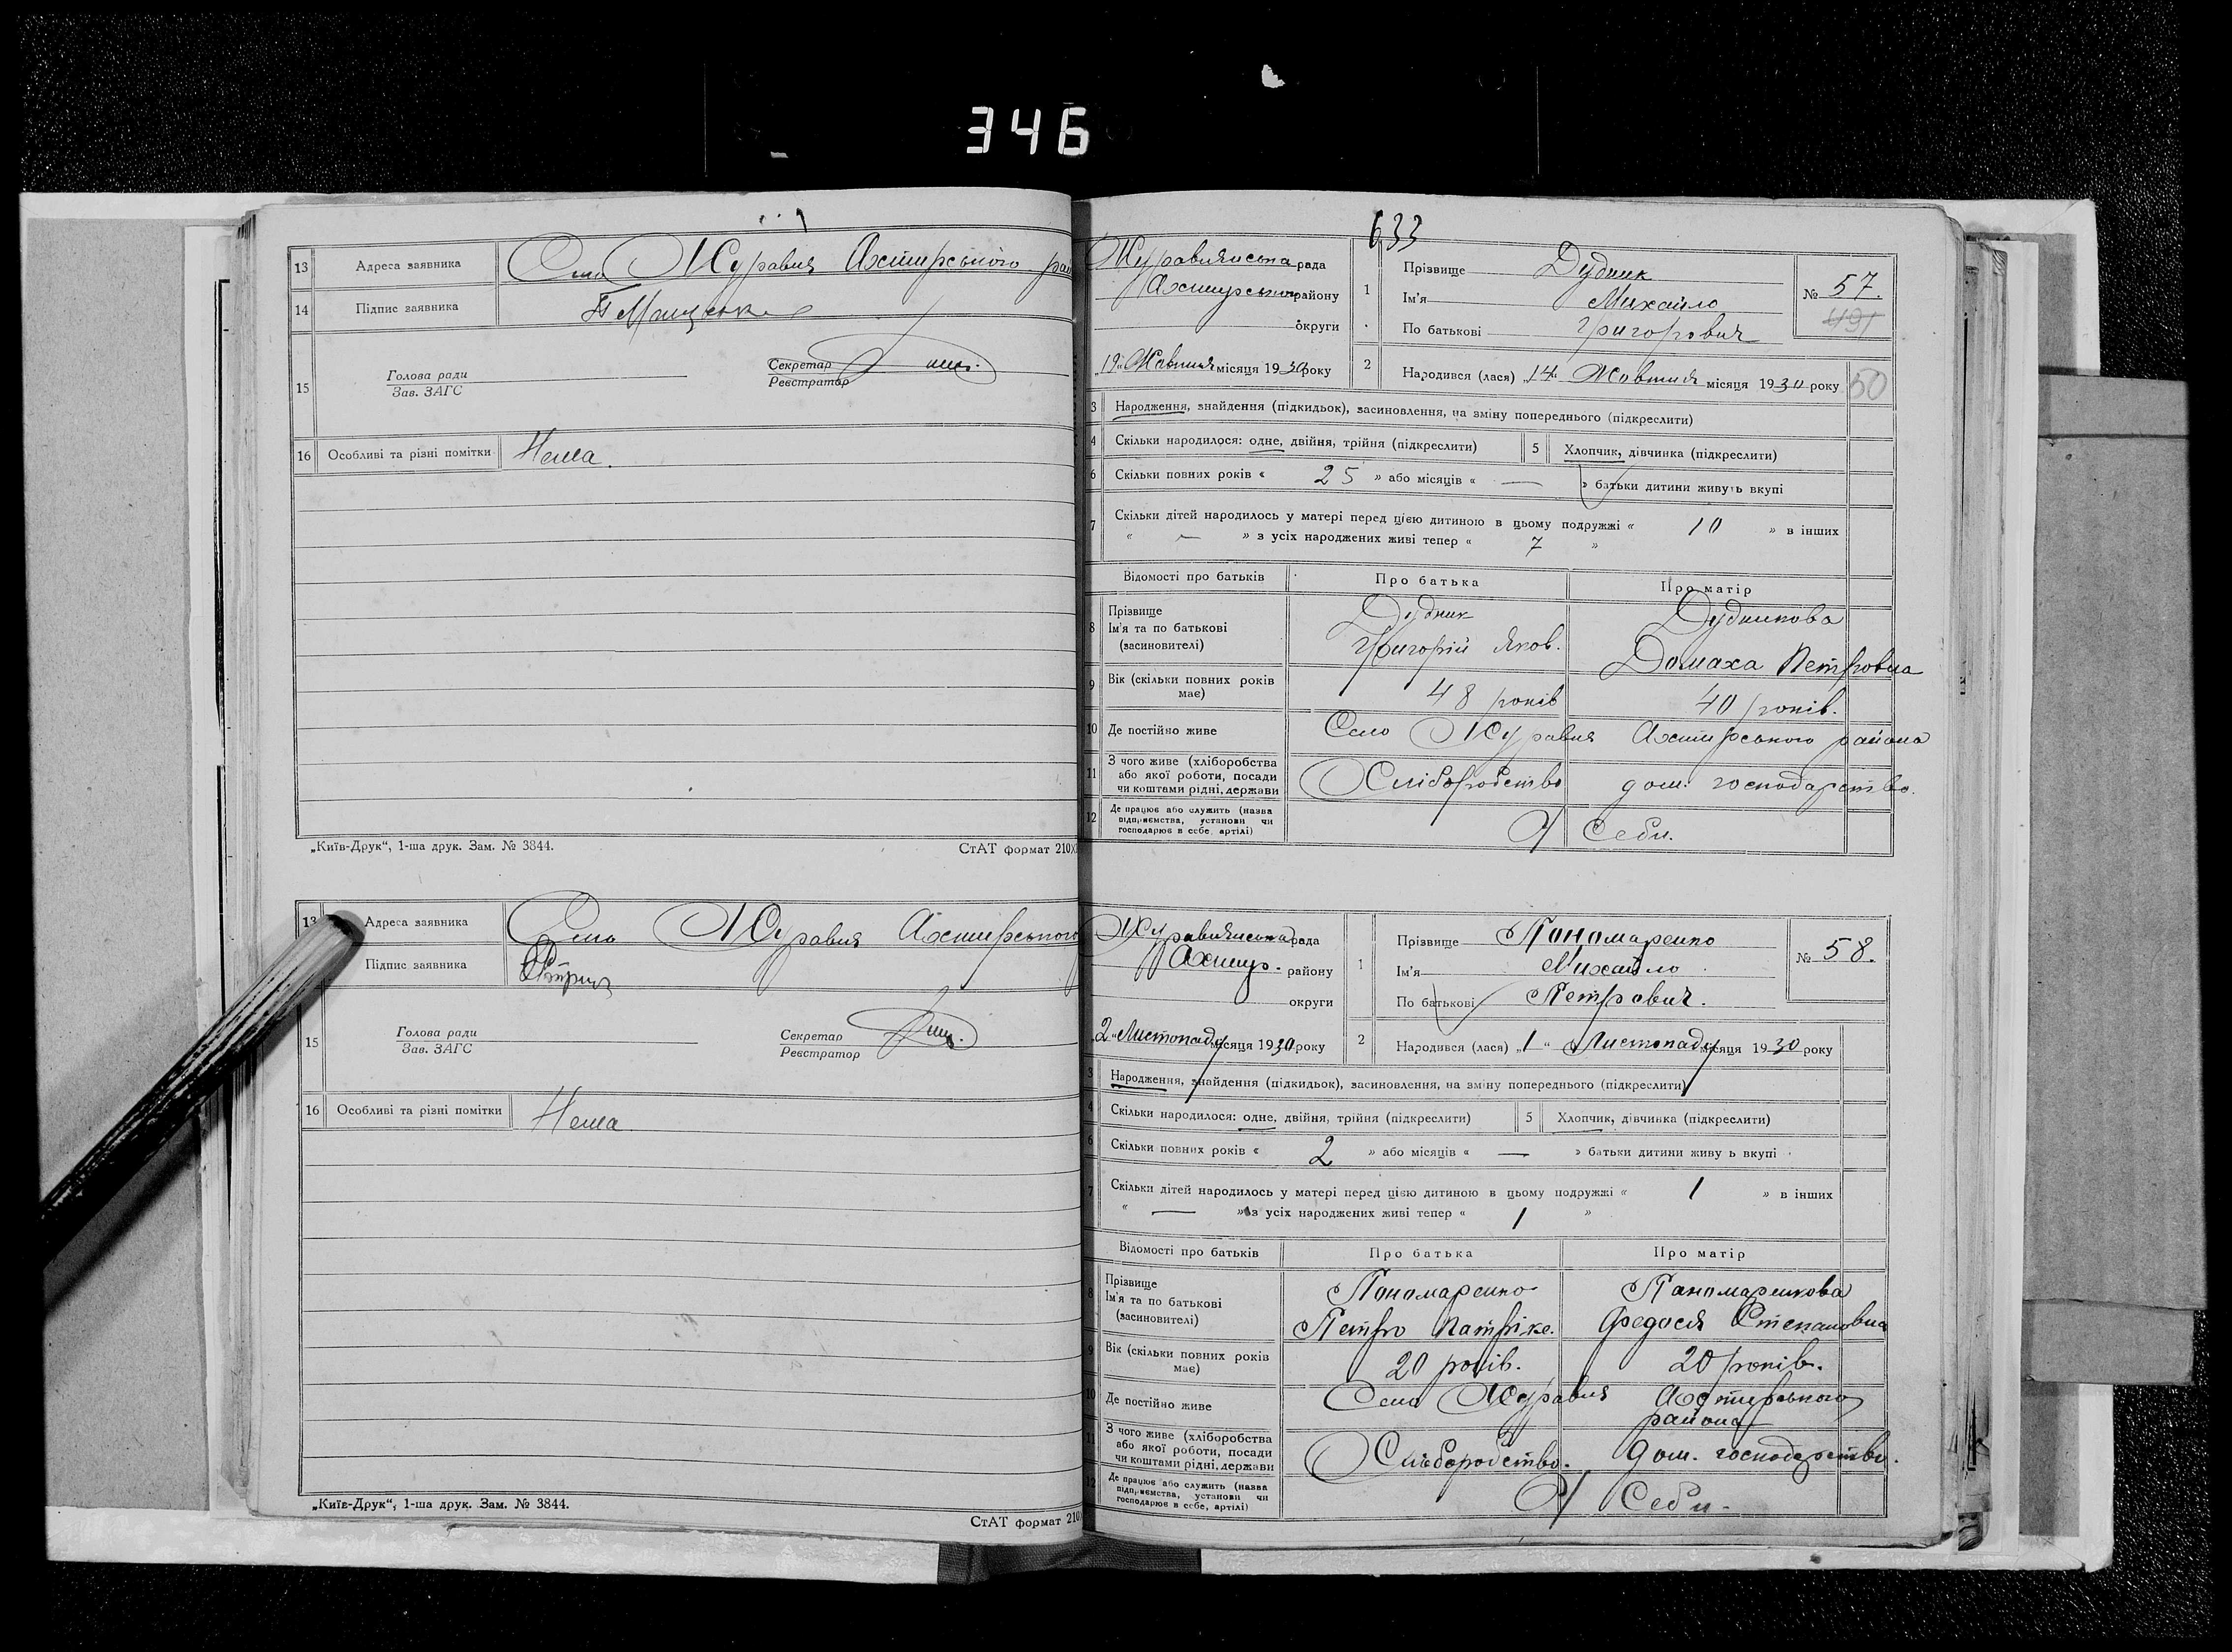 346
13 Адреса заявника Село Журавня Ахтирського рай
14 Підпис заявника
15 Голова ради
Зав. ЗАГС
Секретар
Реєстратор
16 Особливі та різні помітки Нема.
„Київ-Друк“, 1-ша друк. Зам. № 3844. СтАТ формат 210X
13 Адреса заявника Село Журавня Ахтирського
Підпис заявника
15 Голова ради
Зав. ЗАГС
Секретар
Реєстратор
16 Особливі та різні помітки Нема
„Київ-Друк“, 1-ша друк. Зам. № 3844.
СтАТ формат 210
633
Журавнянська рада
Ахтирського району
округи
„19“ Жовтня місяця 1930 року
1 Прізвище Дудник
Ім'я Михайло
По батькові Григорович
№ 57.
491
2 Народився (лася) „14“ Жовтня місяця 1930 року 50
3 Народження, знайдення (підкидьок), засиновлення, на зміну попереднього (підкреслити)
4 Скільки народилося: одне, двійня, трійня (підкреслити) 5 Хлопчик, дівчинка (підкреслити)
6 Скільки повних років « 25 » або місяців « — » батьки дитини живуть вкупі
7 Скільки дітей народилось у матері перед цією дитиною в цьому подружжі « 10 » в інших
« — » з усіх народжених живі тепер « 7 »
Відомості про батьків Про батька Про матір
8 Прізвище
Ім'я та по батькові
(засиновителі)
Дудник
Григорій Яков.
Дудникова
Домаха Петровна
9 Вік (скільки повних років має) 48 років 40 років.
10 Де постійно живе Село Журавня Ахтирського района
11 З чого живе (хліборобства
або якої роботи, посади
чи коштами рідні, держави
Хліборобство дом. господарство.
12 Де працює або служить (назва
підприємства, установи чи
господарює в себе, артілі)
У Себи.
Журавнянська рада
Ахтир. району
округи
„2“ Листопаду місяця 1930 року
1 Прізвище Пономаренко
Ім'я Михайло
По батькові Петрович.
№ 58.
2 Народився (лася) „1“ Листопаду місяця 1930 року
3 Народження, знайдення (підкидьок), засиновлення, на зміну попереднього (підкреслити)
4 Скільки народилося: одне, двійня, трійня (підкреслити) 5 Хлопчик, дівчинка (підкреслити)
6 Скільки повних років « 2 » або місяців « — » батьки дитини живу ь вкупі
7 Скільки дітей народилось у матері перед цією дитиною в цьому подружжі « 1 » в інших
« — » з усіх народжених живі тепер « 1 »
Відомості про батьків Про батька Про матір
8 Прізвище
Ім'я та по батькові
(засиновителі)
Пономаренко
Петро Патріке.
Паномаренкова
Федосія Степановна
9 Вік (скільки повних років має) 20 років. 20 років.
10 Де постійно живе Село Журавня Ахтирського
района
11 З чого живе (хліборобства
або якої роботи, посади
чи коштами рідні, держави
Хліборобство. дом. господарство.
12 Де працює або служить (назва
підприємства, установи чи
господарює в себе, артілі)
У Себи.